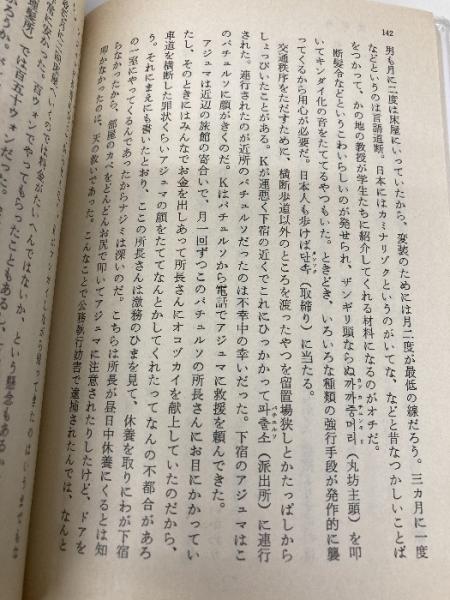 142
男も月に二度は床屋にいっていたから、変装のためには月二度が最低の線だろう。三カ月に一度
などというのは言語道断。日本にはカミナリゾクというのがいてな、などと昔なつかしいことば
をつかって、かの地の教授が学生たちに紹介してくれる材料になるのがオチだ。
断髪令などというこわいらしいのが発せられ、ザンギリ頭ならぬ까까중머리（丸坊主頭）を叩
いてキンダイ化の音をたててるやつもいた。ときどき、いろいろな種類の強行手段が発作的に襲
ってくるから用心が必要だ。日本人も歩けば단속（取締り）に当たる。
交通秩序をただすために、横断歩道以外のところを渡ったやつを留置場狭しとかたっぱしから
しょっぴいたことがある。Ｋが運悪く下宿の近くでこれにひっかかって파출소（派出所）に連行
された。連行されたのが近所のパチュルソだったのは不幸中の幸いだった。下宿のアジュマはこ
のパチュルソに顔がきくのだ。Ｋはパチュルソから電話でアジュマに救援を頼んできた。
アジュマは近辺の旅館の寄合いで、月一回ずつこのパチュルソの所長さんにお目にかかってい
たし、そのときにはみんなでお金を出しあって所長さんにオコヅカイを献上していたのだから、
車道を横断した罪状くらいアジュマの顔をたててなんとかしてくれたってなんの不都合があろ
う。それにまえにも書いたとおり、ここの所長さんは激務のひまを見て、休養を取りにわが下宿
の一室にやってくるんであったからナジミは深いのだ。こちらは所長が昼日中休養にくるとは知
らなかったから、部屋のカベをどんどんお尻で叩いてアジュマに注意されたりしたけど、ドアを
叩かなかったのは、天の救いであった。こんなことで公務執行妨害で逮捕されたんでは、なんと